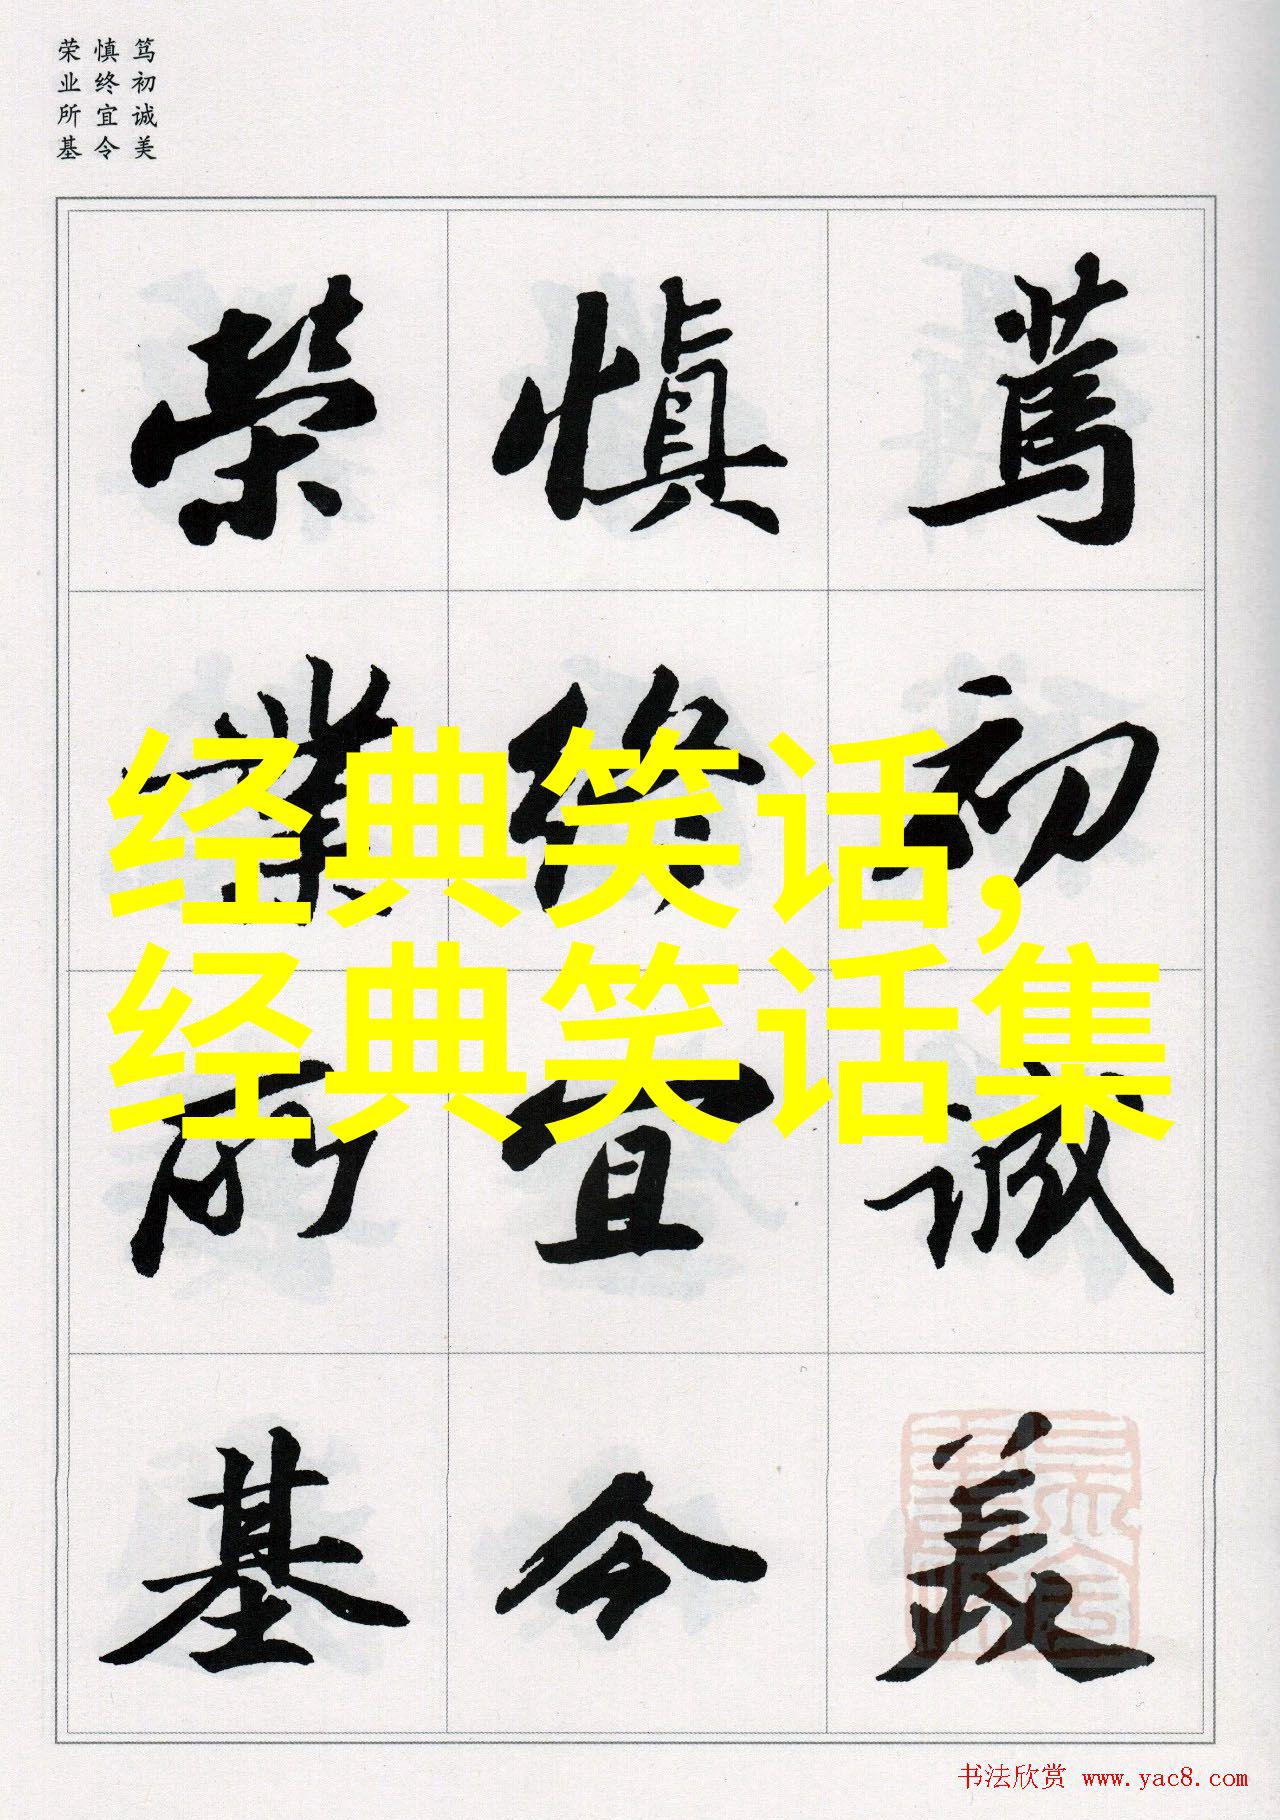 笃初诚美
慎终宜令
荣业所基
篤初誠美
慎終宜令
榮業所基
经典笑话,
经典笑话集
书法欣赏 www.yac8.com